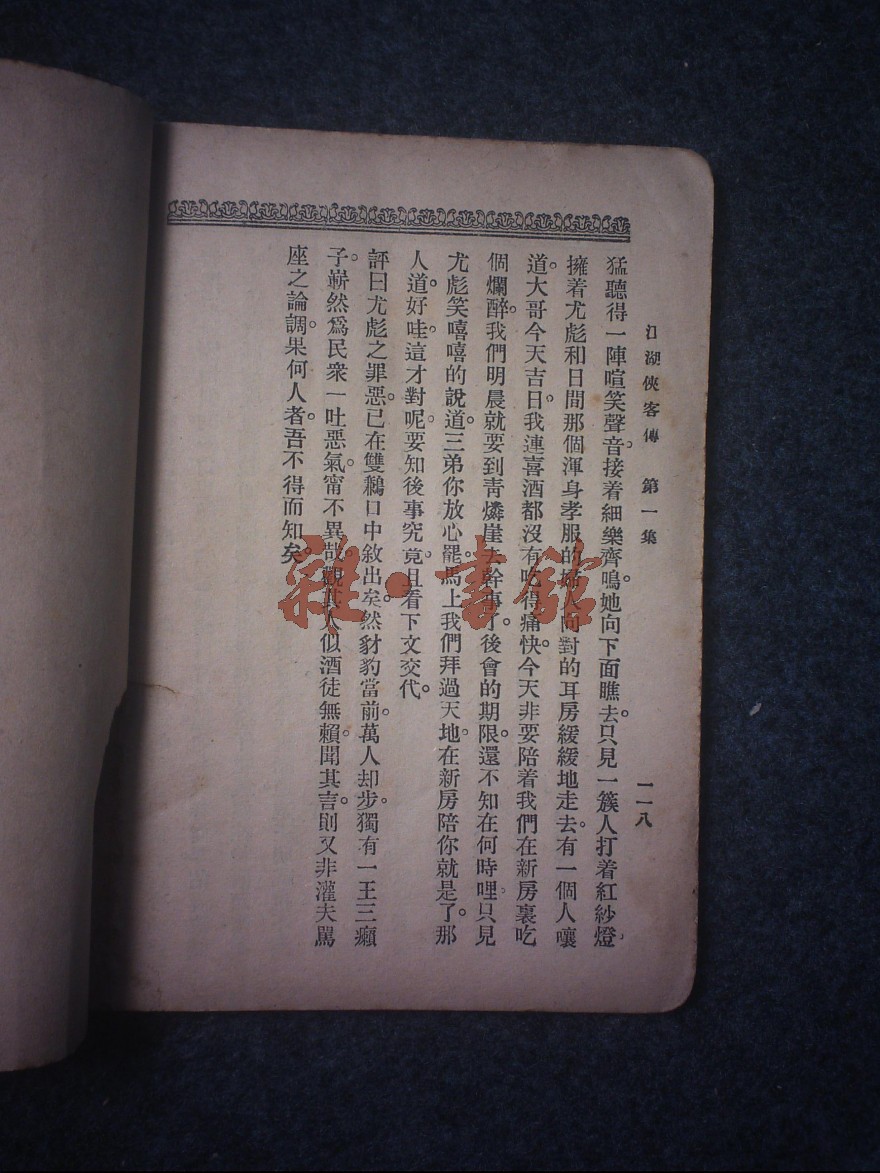 江湖俠客傳 第一集 一一八
猛聽得一陣喧笑聲音。接着細樂齊鳴。她向下面瞧去。只見一簇人打着紅紗燈。
擁着尤彪和日間那個渾身孝服的婦人向對的耳房緩緩地走去。有一個人嚷
道。大哥今天吉日。我連喜酒都沒有吃得痛快。今天非要陪着我們在新房裏吃
個爛醉。我們明晨就要到靑燐崖去幹事了。後會的期限。還不知在何時哩。只見
尤彪笑嘻嘻的說道。三弟你放心罷。馬上我們拜過天地。在新房陪你就是了。那
人道。好哇。這才對呢。要知後事究竟。且看下文交代。
評曰尤彪之罪惡。已在雙鶼口中敘出矣。然豺豹當前。萬人却步。獨有一王三癩
子。嶄然爲民衆一吐惡氣。寗不異哉。觀其人似酒徒無賴。聞其言。則又非灌夫罵
座之論調。果何人者。吾不得而知矣。
雜·書館